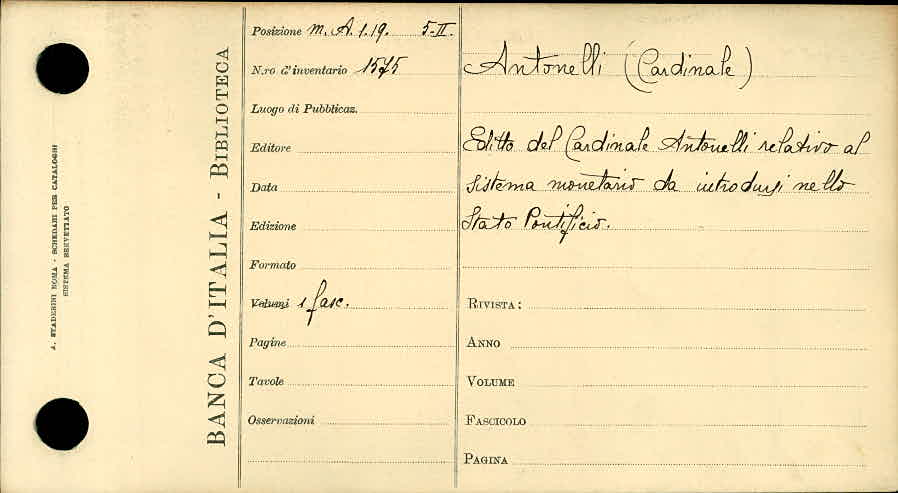 A. STADERINI ROMA - SCHEDARI PER CATALOGHI
SISTEMA BREVETTATO
BANCA D'ITALIA - BIBLIOTECA
Posizione m. A. 1. 19. 5-II.
N.ro d'inventario 1575
Luogo di Pubblicaz.
Editore
Data
Edizione
Formato
Volumi 1 fasc.
Pagine
Tavole
Osservazioni
Antonelli (Cardinale)
Editto del Cardinale Antonelli relativo al
sistema monetario da introdursi nello
Stato Pontificio.
RIVISTA:
ANNO
VOLUME
FASCICOLO
PAGINA